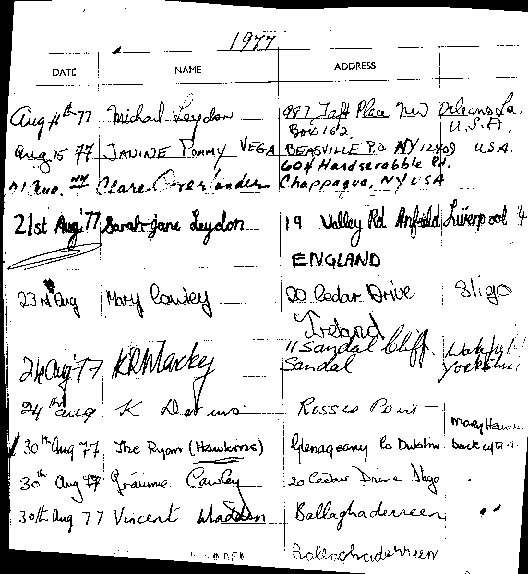 1977
DATE NAME ADDRESS
Aug 11th 77 Michael Leydon 997 Taft Place New Orleans La.
U.S.A.
Aug 15 77 JANINE POMMY VEGA Box 162 BEARSVILLE P.O. NY 12409 U.S.A.
21 Aug. Clare Overlander 604 Hardscrabble Rd.
Chappaqua, NY USA
21st Aug '77 Sarah-Jane Leydon 19 Valley Rd Anfield Liverpool 4
ENGLAND
23rd Aug Mary Cawley 20 Cedar Drive Sligo
Ireland
24 Aug '77 11 Sandal Cliff
Sandal
24th Aug K Rosses Point
30th Aug 77 The Ryans (Hawkins) Glenageary Co Dublin
30th Aug 77 Gráinne Cawley 20 Cedar Drive Sligo
30th Aug 77 Vincent Madden Ballaghaderreen
Ballaghaderreen